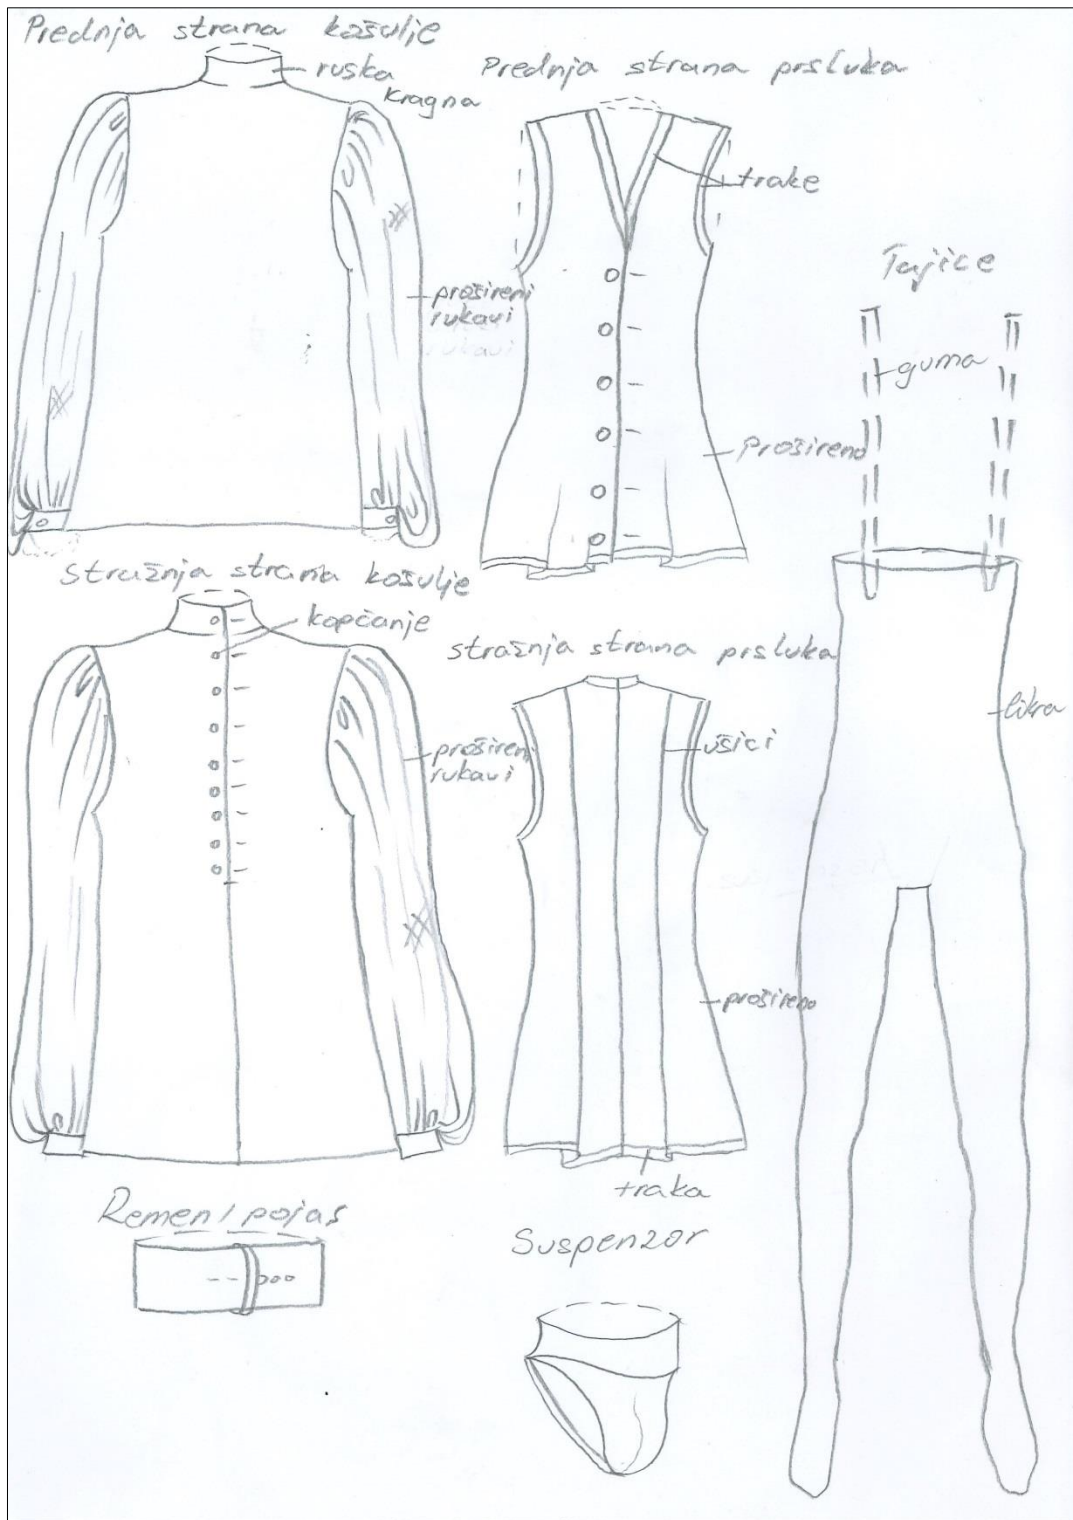 Prednja strana košulje
ruska
kragna
prošireni
rukavi
rukavi
Prednja strana prsluka
trake
Prošireno
Tajice
guma
likra
Stražnja strana košulje
kopčanje
prošireni
rukavi
stražnja strana prsluka
ušici
prošireno
traka
Remen/pojas
Suspenzor